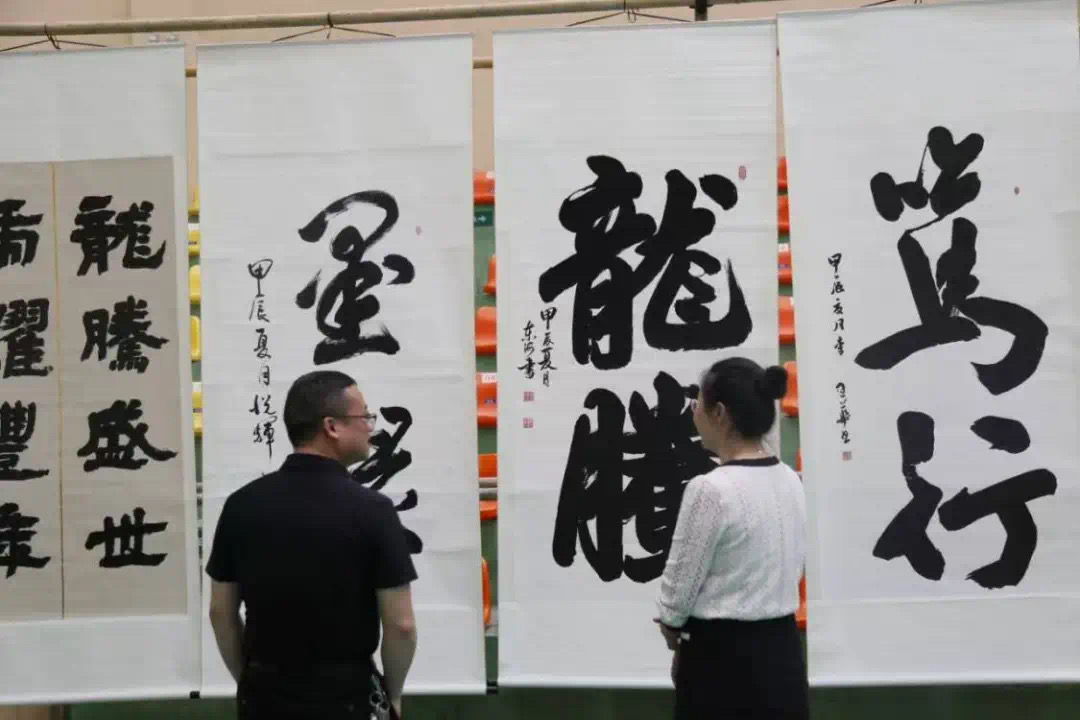 篤行
甲辰夏月書
龍騰
甲辰夏月
东河书
墨
甲辰夏月悦輝
龍騰盛世
豐年